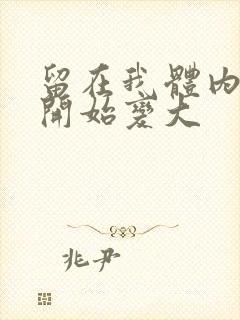 留在我體內
開始變大
兆尹